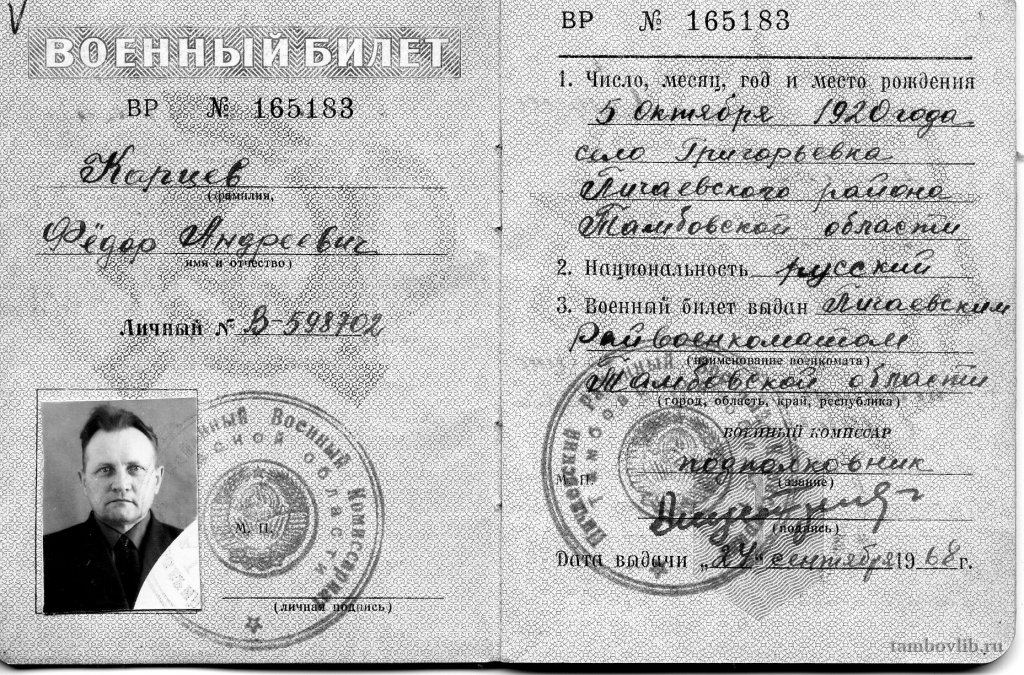 ВОЕННЫЙ БИЛЕТ
ВР № 165183
Карцев
(фамилия,
Фёдор Андреевич
имя и отчество)
Личный № В-598702
М. П.
(личная подпись)
ный Военный Комиссариат
ской области
ВР № 165183
1. Число, месяц, год и место рождения
5 Октября 1920 года
село Григорьевка
Пичаевского района
Тамбовской области
2. Национальность русский
3. Военный билет выдан Пичаевским
Райвоенкоматом
(наименование военкомата)
Тамбовской области
(город, область, край, республика)
ВОЕННЫЙ КОМИССАР
подполковник
(звание)
М. П.
(подпись)
Дата выдачи „24" сентября 1968 г.
tambovlib.ru